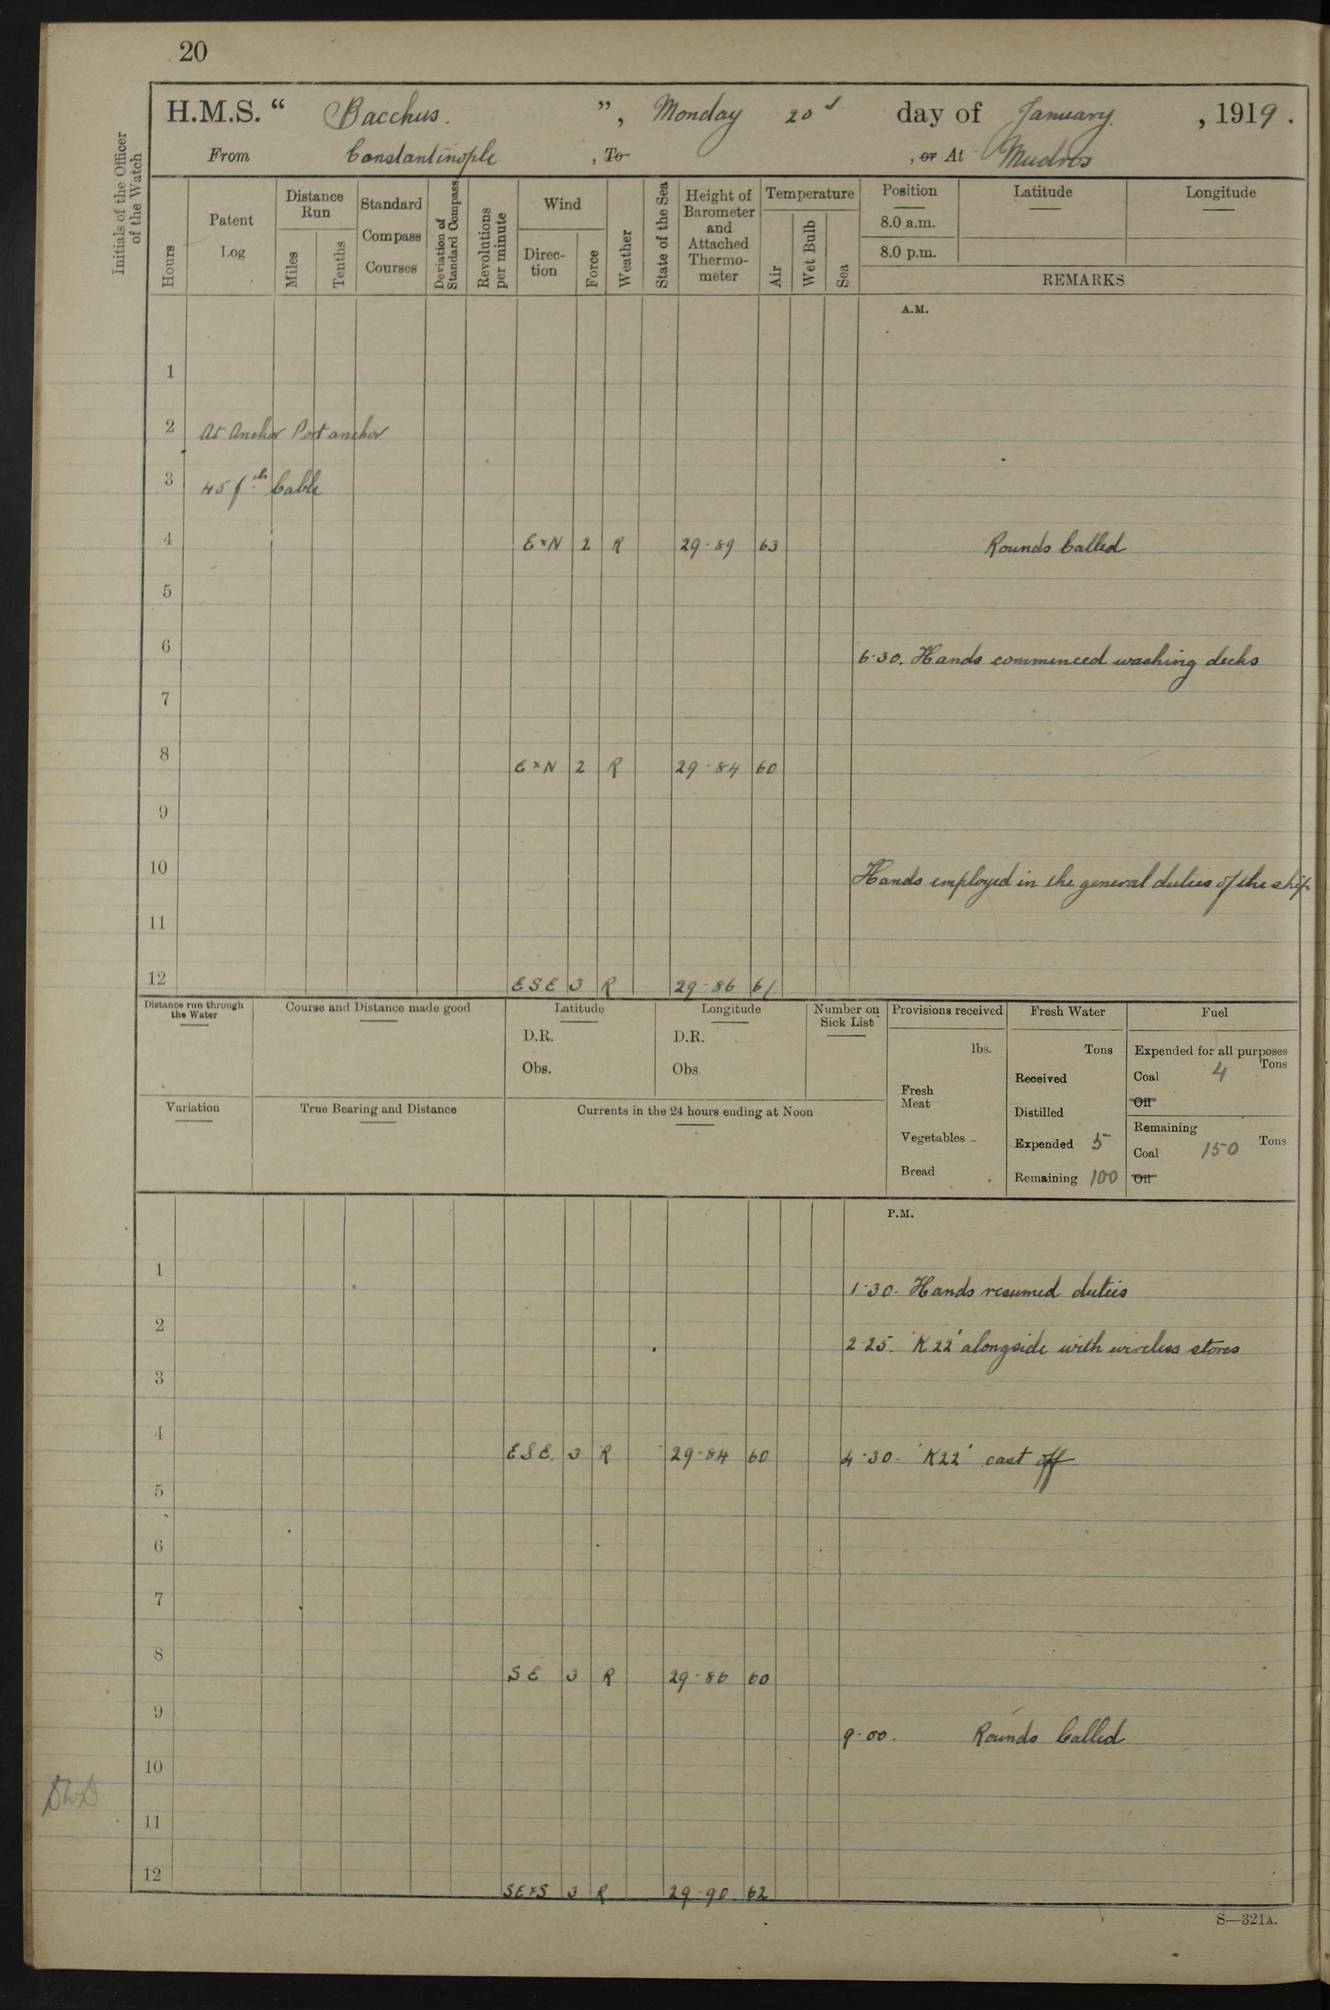 20
H.M.S. “ Bacchus. ”, Monday 20 day of January, 1919.
From Constantinople, To , or At Mudros
Initials of the Officer of the Watch
Hours
Patent Log
Distance Run
Miles
Tenths
Standard Compass Courses
Deviation of Standard Compass
Revolutions per minute
Wind
Direction
Force
Weather
State of the Sea
Height of Barometer and Attached Thermometer
Temperature
Air
Wet Bulb
Sea
Position
8.0 a.m.
8.0 p.m.
Latitude
Longitude
REMARKS
A.M.
1
2 At Anchor Port anchor
3 45 fths Cable
4 E x N 2 R 29-89 63 Rounds Called
5
6 6-30. Hands commenced washing decks
7
8 E x N 2 R 29-84 60
9
10 Hands employed in the general duties of the ship
11
12 ESE 3 R 29-86 61
Distance run through the Water
Course and Distance made good
Latitude
D.R.
Obs.
Longitude
D.R.
Obs
Number on Sick List
Provisions received
lbs.
Fresh Meat
Vegetables
Bread
Fresh Water
Tons
Received
Distilled
Expended 5
Remaining 100
Fuel
Expended for all purposes
Tons
Coal 4
Oil
Remaining
Tons
Coal 150
Oil
Variation
True Bearing and Distance
Currents in the 24 hours ending at Noon
P.M.
1 1-30. Hands resumed duties
2 2-25. 'K22' alongside with wireless stores
3
4 ESE. 3 R 29-84 60 4-30. 'K22' cast off
5
6
7
8 SE 3 R 29-86 60
9 9-00. Rounds Called
10
11
12 SExS 3 R 29-90 62
S—321A.